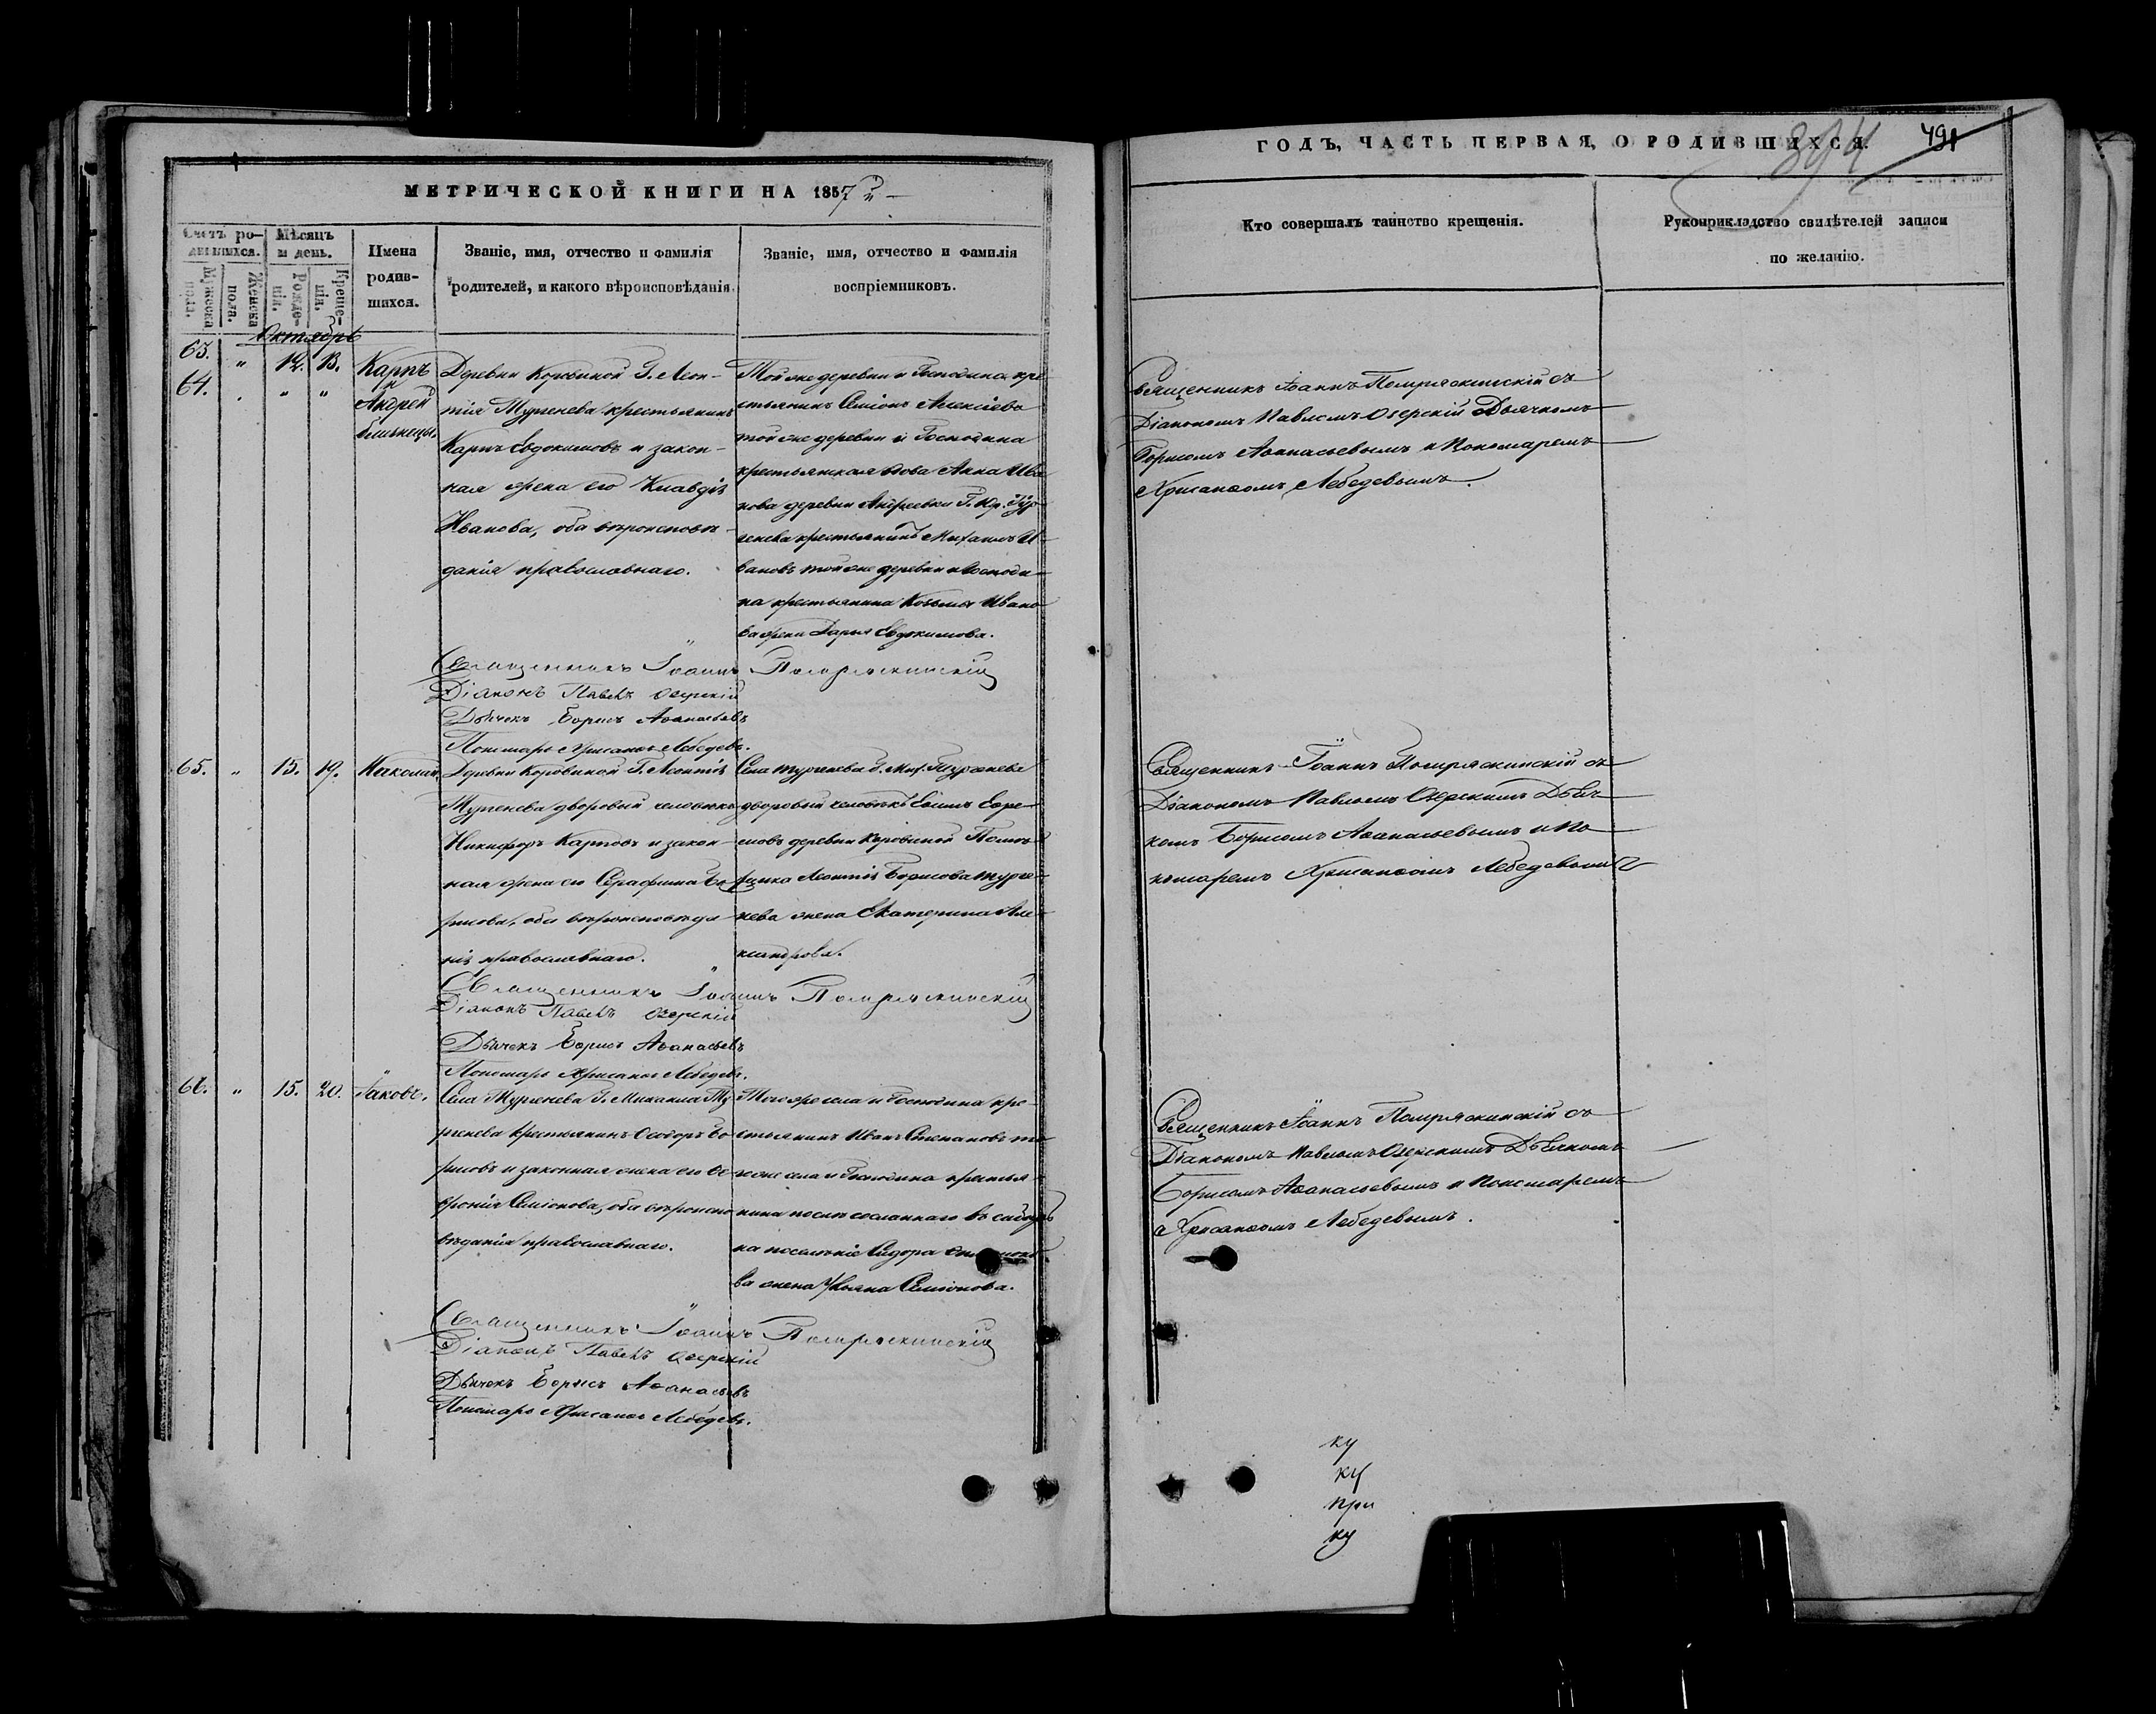 МЕТРИЧЕСКОЙ КНИГИ НА 1857й
Счетъ ро-
дившихся.
Мѣсяцъ
и день.
Имена
родив-
шихся.
Званіе, имя, отчество и фамилія
родителей, и какого вѣроисповѣданія.
Званіе, имя, отчество и фамилія
воспріемниковъ.
Мужеска
пола.
Женска
пола.
Рожде-
нія.
Креще-
нія.
Октябрь
63. " 12. 13. Карпъ
64. " " и
Андрей
близнецы.
Деревни Коровиной Г. Леон-
тія Тургенева крестьянинъ
Карпъ Евдокимовъ и закон-
ная жена его Клавдія
Иванова, оба вѣроисповѣ-
данія православнаго.
Той же деревни и Господина кре
стьянинъ Симіонъ Алексіевъ
той же деревни и Господина
крестьянская вдова Анна Ива
нова деревни Андреевки Г. Юр. Тур-
генева крестьянинъ Михаилъ И-
вановъ той же деревни и Господи-
на крестьянина Козьмы Ивано
ва жена Дарья Евдокимова.
Священникъ Іоаннъ Помряскинскій
Діаконъ Павелъ Озерскій
Дьячекъ Борисъ Аѳанасьевъ
Пономарь Хрисанѳъ Лебедевъ.
65. " 15. 19.
Деревни Коровиной Г. Леонтія
Тургенева дворовый человѣкъ
Никифоръ Карповъ и закон-
ная жена его Серафима Бо
рисова, оба вѣроисповѣда
нія православнаго.
Села Тургенева Г. Мих. Тургенева
дворовый человѣкъ Ефимъ Ефре-
мовъ деревни Коровиной Помѣ-
щика Леонтія Борисова Турге-
нева жена Екатерина Але-
ксандрова.
Священникъ Іоаннъ Помряскинскій
Діаконъ Павелъ Озерскій
Дьячекъ Борисъ Аѳанасьевъ
Пономарь Хрисанѳъ Лебедевъ.
66. " 15. 20. Іаковъ.
Села Тургенева Г. Михаила Ту
ргенева крестьянинъ Ѳеодоръ Бо
рисовъ и законная жена его Ѳе
вронія Симіонова, оба вѣроиспо
вѣданія православнаго.
Того же села и Господина кре-
стьянинъ Иванъ Степановъ то
гоже села и Господина крестья-
нина послѣ сосланнаго въ сибирь
на поселеніе Сидора
ва жена Ульяна Симіонова.
Священникъ Іоаннъ Помряскинскій
Діаконъ Павелъ Озерскій
Дьячекъ Борисъ Аѳанасьевъ
Пономарь Хрисанѳъ Лебедевъ.
ГОДЪ, ЧАСТЬ ПЕРВАЯ, О РОДИВШИХСЯ.
491
894
Кто совершалъ таинство крещенія.
Рукоприкладство свидѣтелей записи
по желанію.
Священникъ Іоаннъ Помряскинскій съ
Діакономъ Павломъ Озерскій Дьячкомъ
Борисомъ Аѳанасьевымъ и Пономаремъ
Хрисанѳомъ Лебедевымъ.
Священникъ Іоаннъ Помряскинскій съ
Діакономъ Павломъ Озерскимъ Дьяч
комъ Борисомъ Аѳанасьевымъ и По
номаремъ Хрисанѳомъ Лебедевымъ
Священникъ Іоаннъ Помряскинскій съ
Діакономъ Павломъ Озерскимъ Дьячкомъ
Борисомъ Аѳанасьевымъ и Пономаремъ
Хрисанѳомъ Лебедевымъ.
ку
ку
при
ку